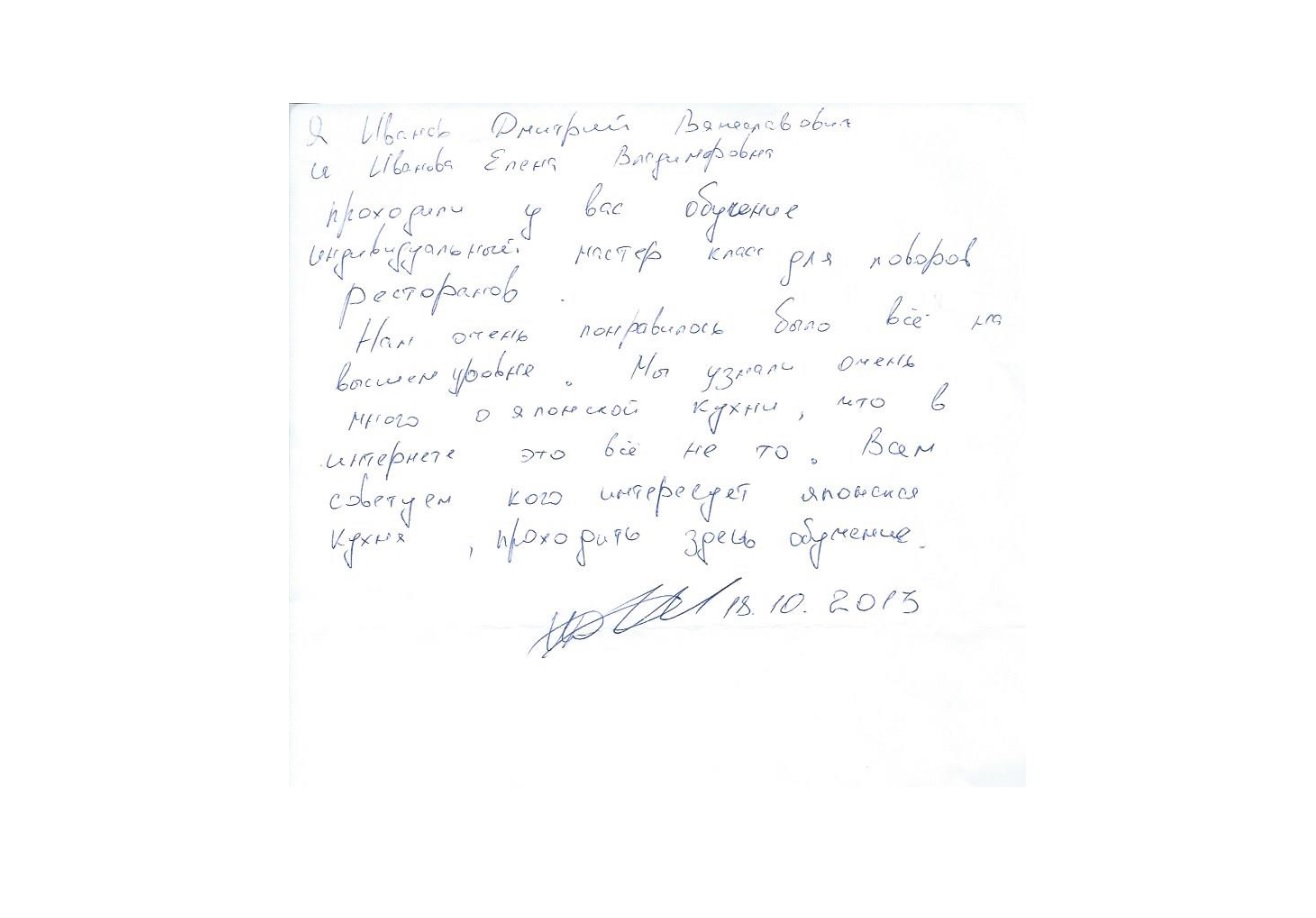 Я Иванов Дмитрий Вячеславович
и Иванова Елена Владимировна
проходили у вас обучение
индивидуальный мастер класс для поворов
ресторанов .
Нам очень понравилось было всё на
высшем уровне . Мы узнали очень
много о японской кухни , что в
интернете это всё не то . Всем
советуем кого интересует японская
кухня , проходить здесь обучение .
18. 10. 2013